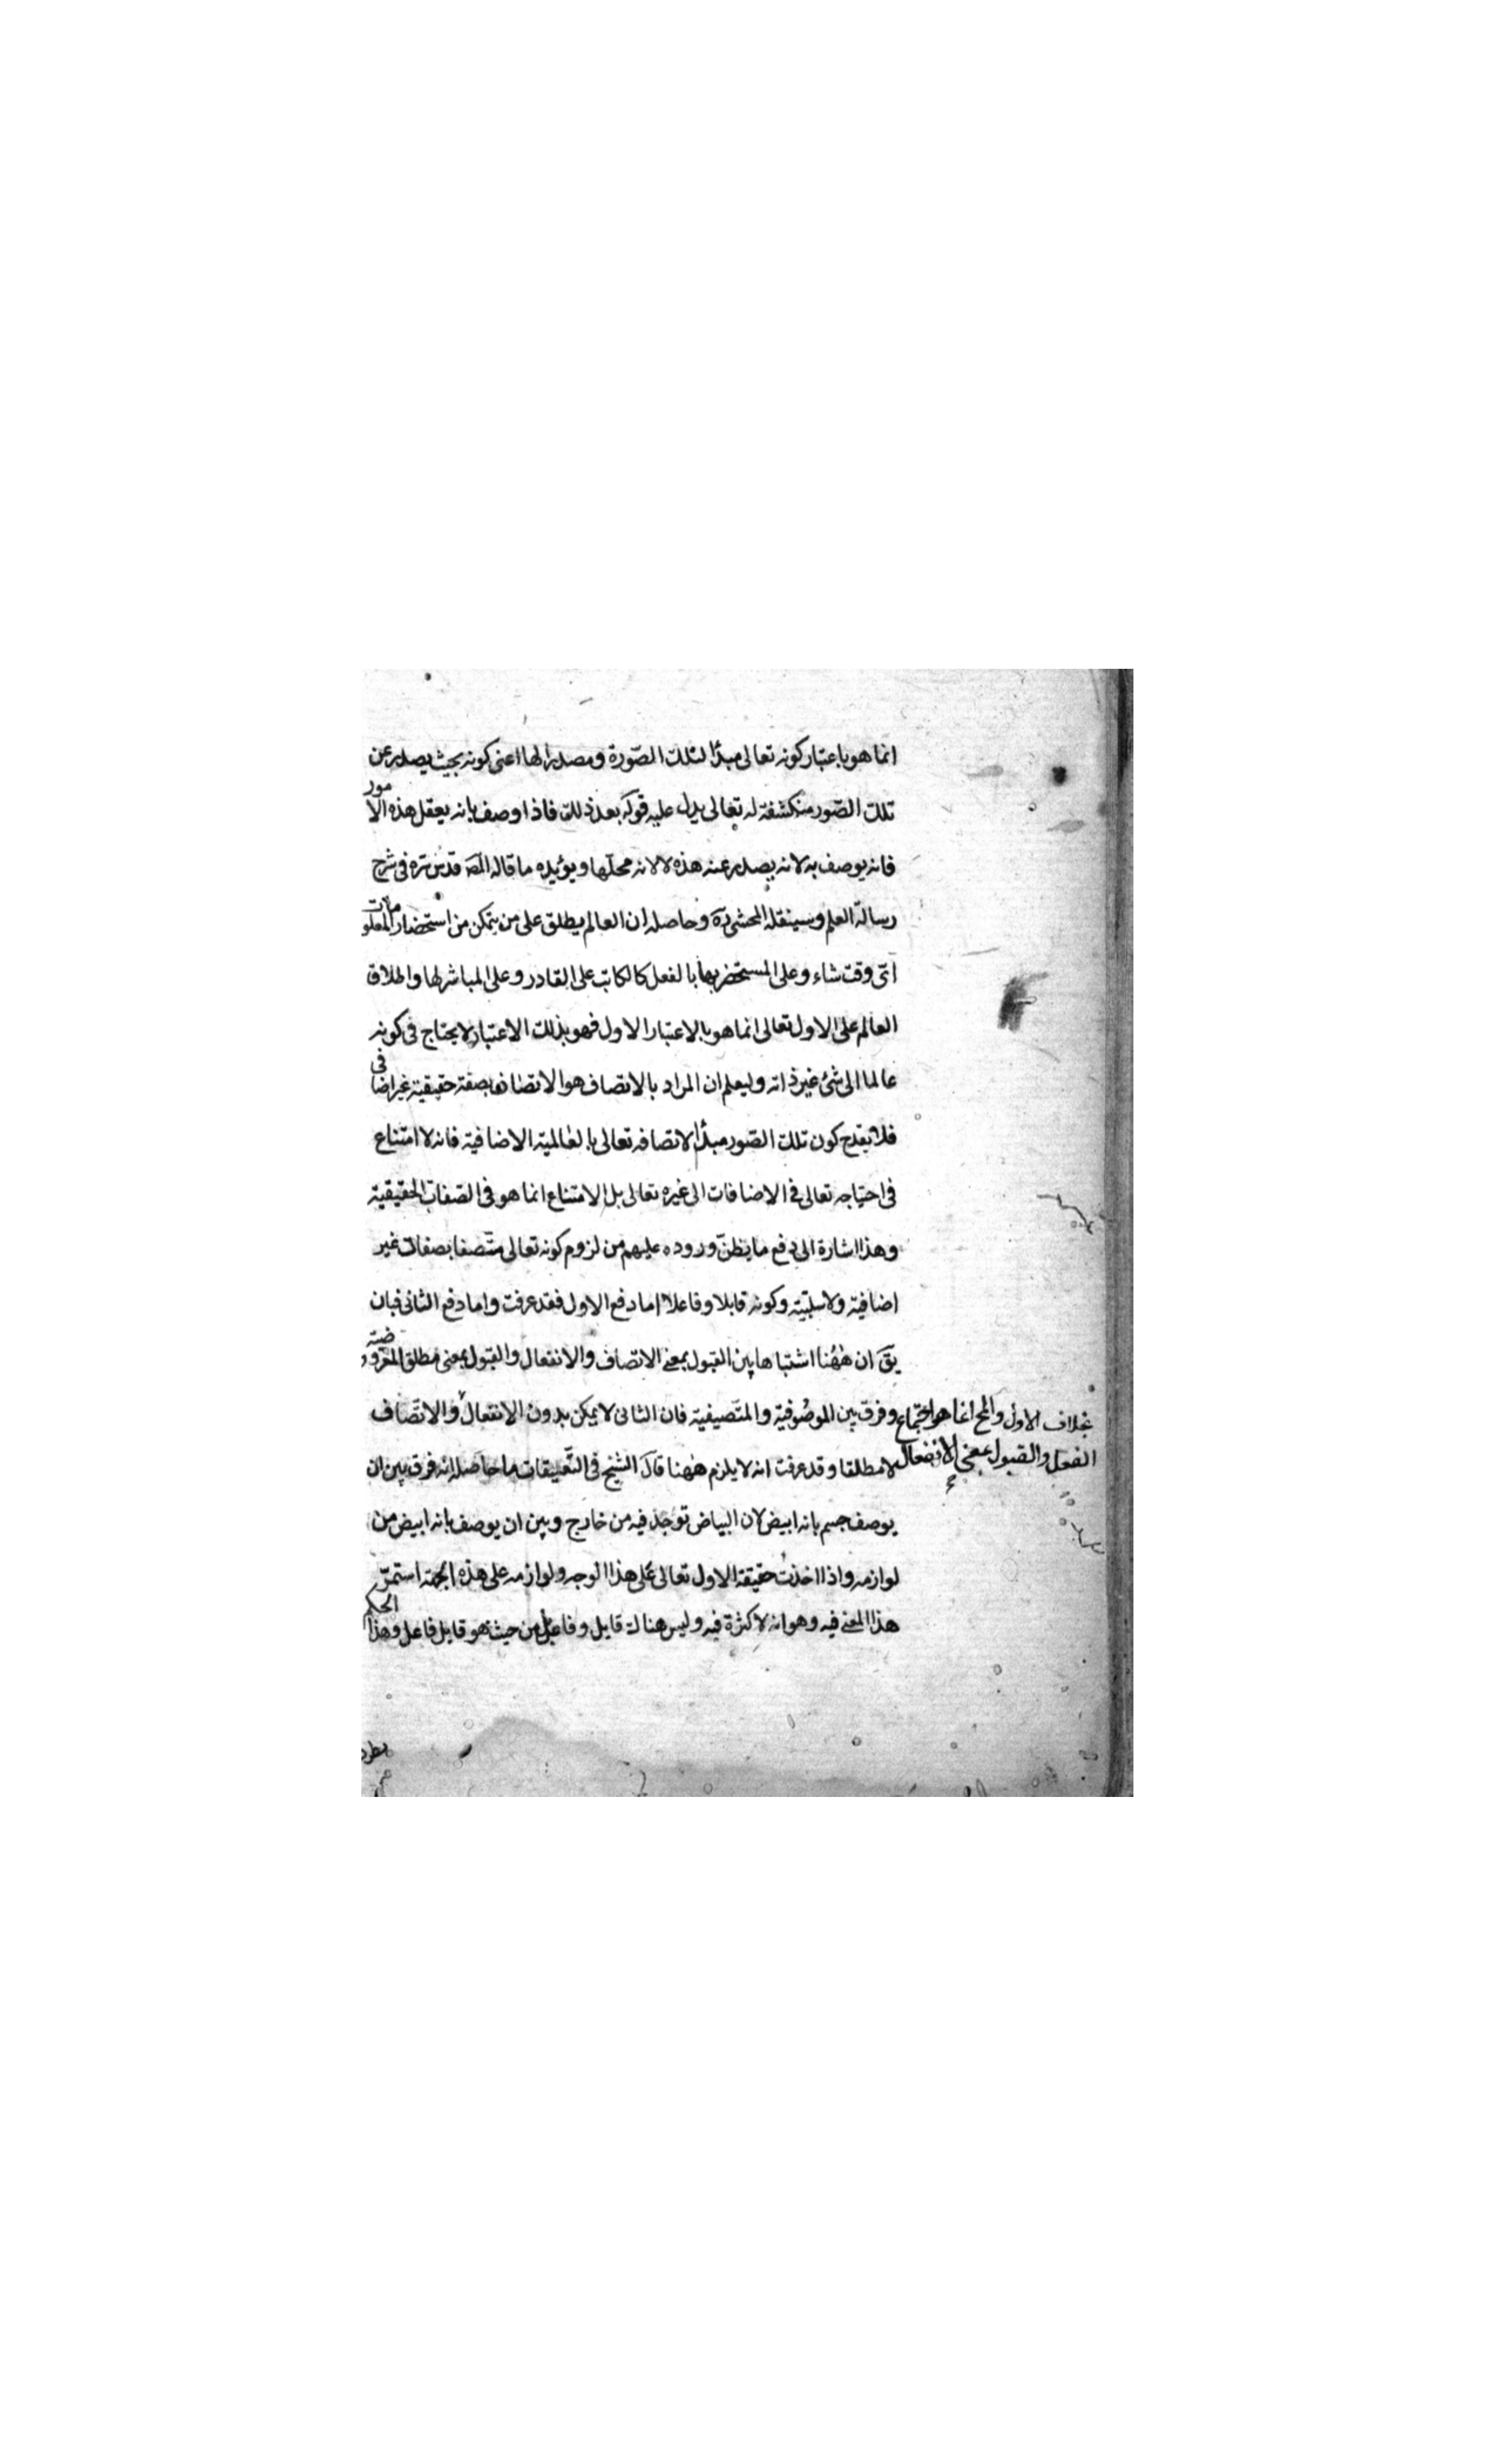 انما هو باعتبار كونه تعالى مبدأ لتلك الصّورة ومصدرا لها اعنى كونه بحيث يصدر عن
تلك الصّور منكشفة له تعالى يدل عليه قوله بعد ذلك فاذا وصف بانه يعقل هذه الامور
فانه يوصف به لانه يصدر عنه هذه لا لانه محلّها ويؤيده ما قاله المص قدس سره فى شرح
رسالة العلم وسينقله المحشى ره وحاصله ان العالم يطلق على من يتمكن من استحضار المعلومات
اىّ وقت شاء وعلى المستحضر بها بالفعل كالكاتب على القادر وعلى المباشر لها واطلاق
العالم على الاول تعالى انما هو بالاعتبار الاول فهو بذلك الاعتبار لا يحتاج فى كونه
عالما الى شئ غير ذاته وليعلم ان المراد بالاتصاف هو الاتصاف بصفة حقيقية غير اضافى
فلا يقدح كون تلك الصّور مبدأ لاتصافه تعالى بالعالمية الاضافية فانه لا امتناع
فى احتياجه تعالى فى الاضافات الى غيره تعالى بل الامتناع انما هو فى الصفات الحقيقية
وهذا اشارة الى دفع ما يظنّ وروده عليهم من لزوم كونه تعالى متّصفا بصفات غير
اضافية ولا سلبيّة وكونه قابلا وفاعلا اما دفع الاول فقد عرفت واما دفع الثانى فبان
يق ان ههنا اشتباها بين القبول بمعنى الاتصاف والانفعال والقبول بمعنى مطلق المعروضية
وفرق بين الموضوفية والمتّصيفية فان الثانى لا يمكن بدون الانفعال والاتصاف
بخلاف الاول والمح انما هو اجتماع
الفعل والقبول بمعنى الانفعال
لا مطلقا وقد عرفت انه لا يلزم ههنا قال الشيخ فى التّعليقات ما حاصله انه فرق بين ان
يوصف جسم بانه ابيض لان البياض توجد فيه من خارج وبين ان يوصف بانه ابيض من
لوازمه واذا اخذت حقيقة الاول تعالى على هذا الوجه ولوازمه على هذه الجهة استمرّ
هذا المعنى فيه وهو انه لا كثرة فيه وليس هناك قابل وفاعل من حيث هو قابل فاعل وهذا الحكم